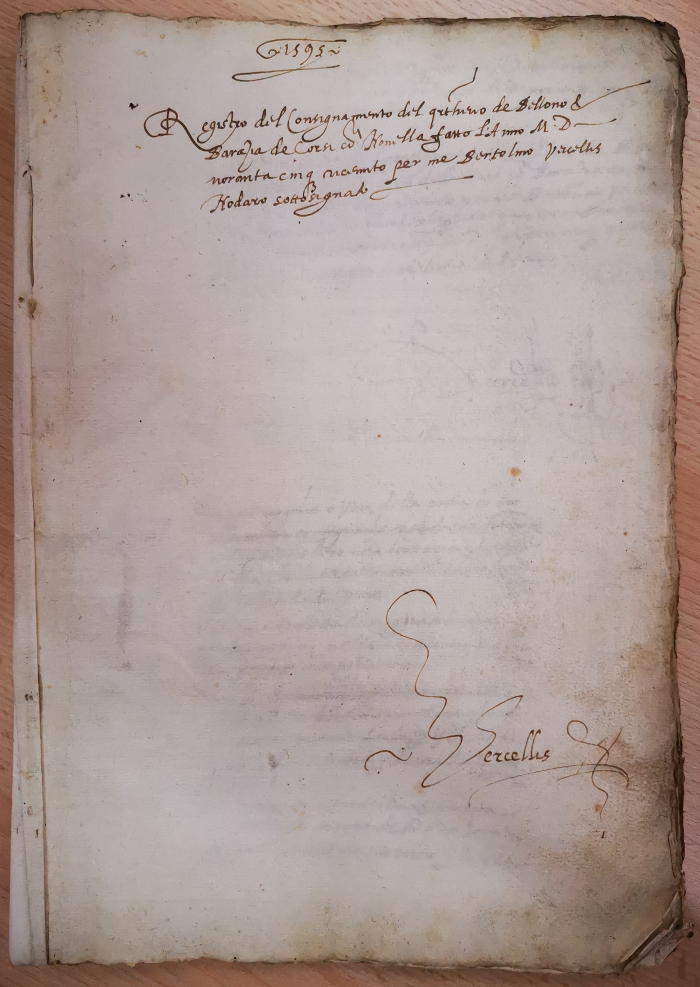 ~1595~
Registro del Consignamento del qrthiero de Bellono &
Baraza de Corsi co Novella fatto l'Anno M. D.
novonta cinq per me Bertolmo Vercellis
Nodaro sottosignato
Vercellis